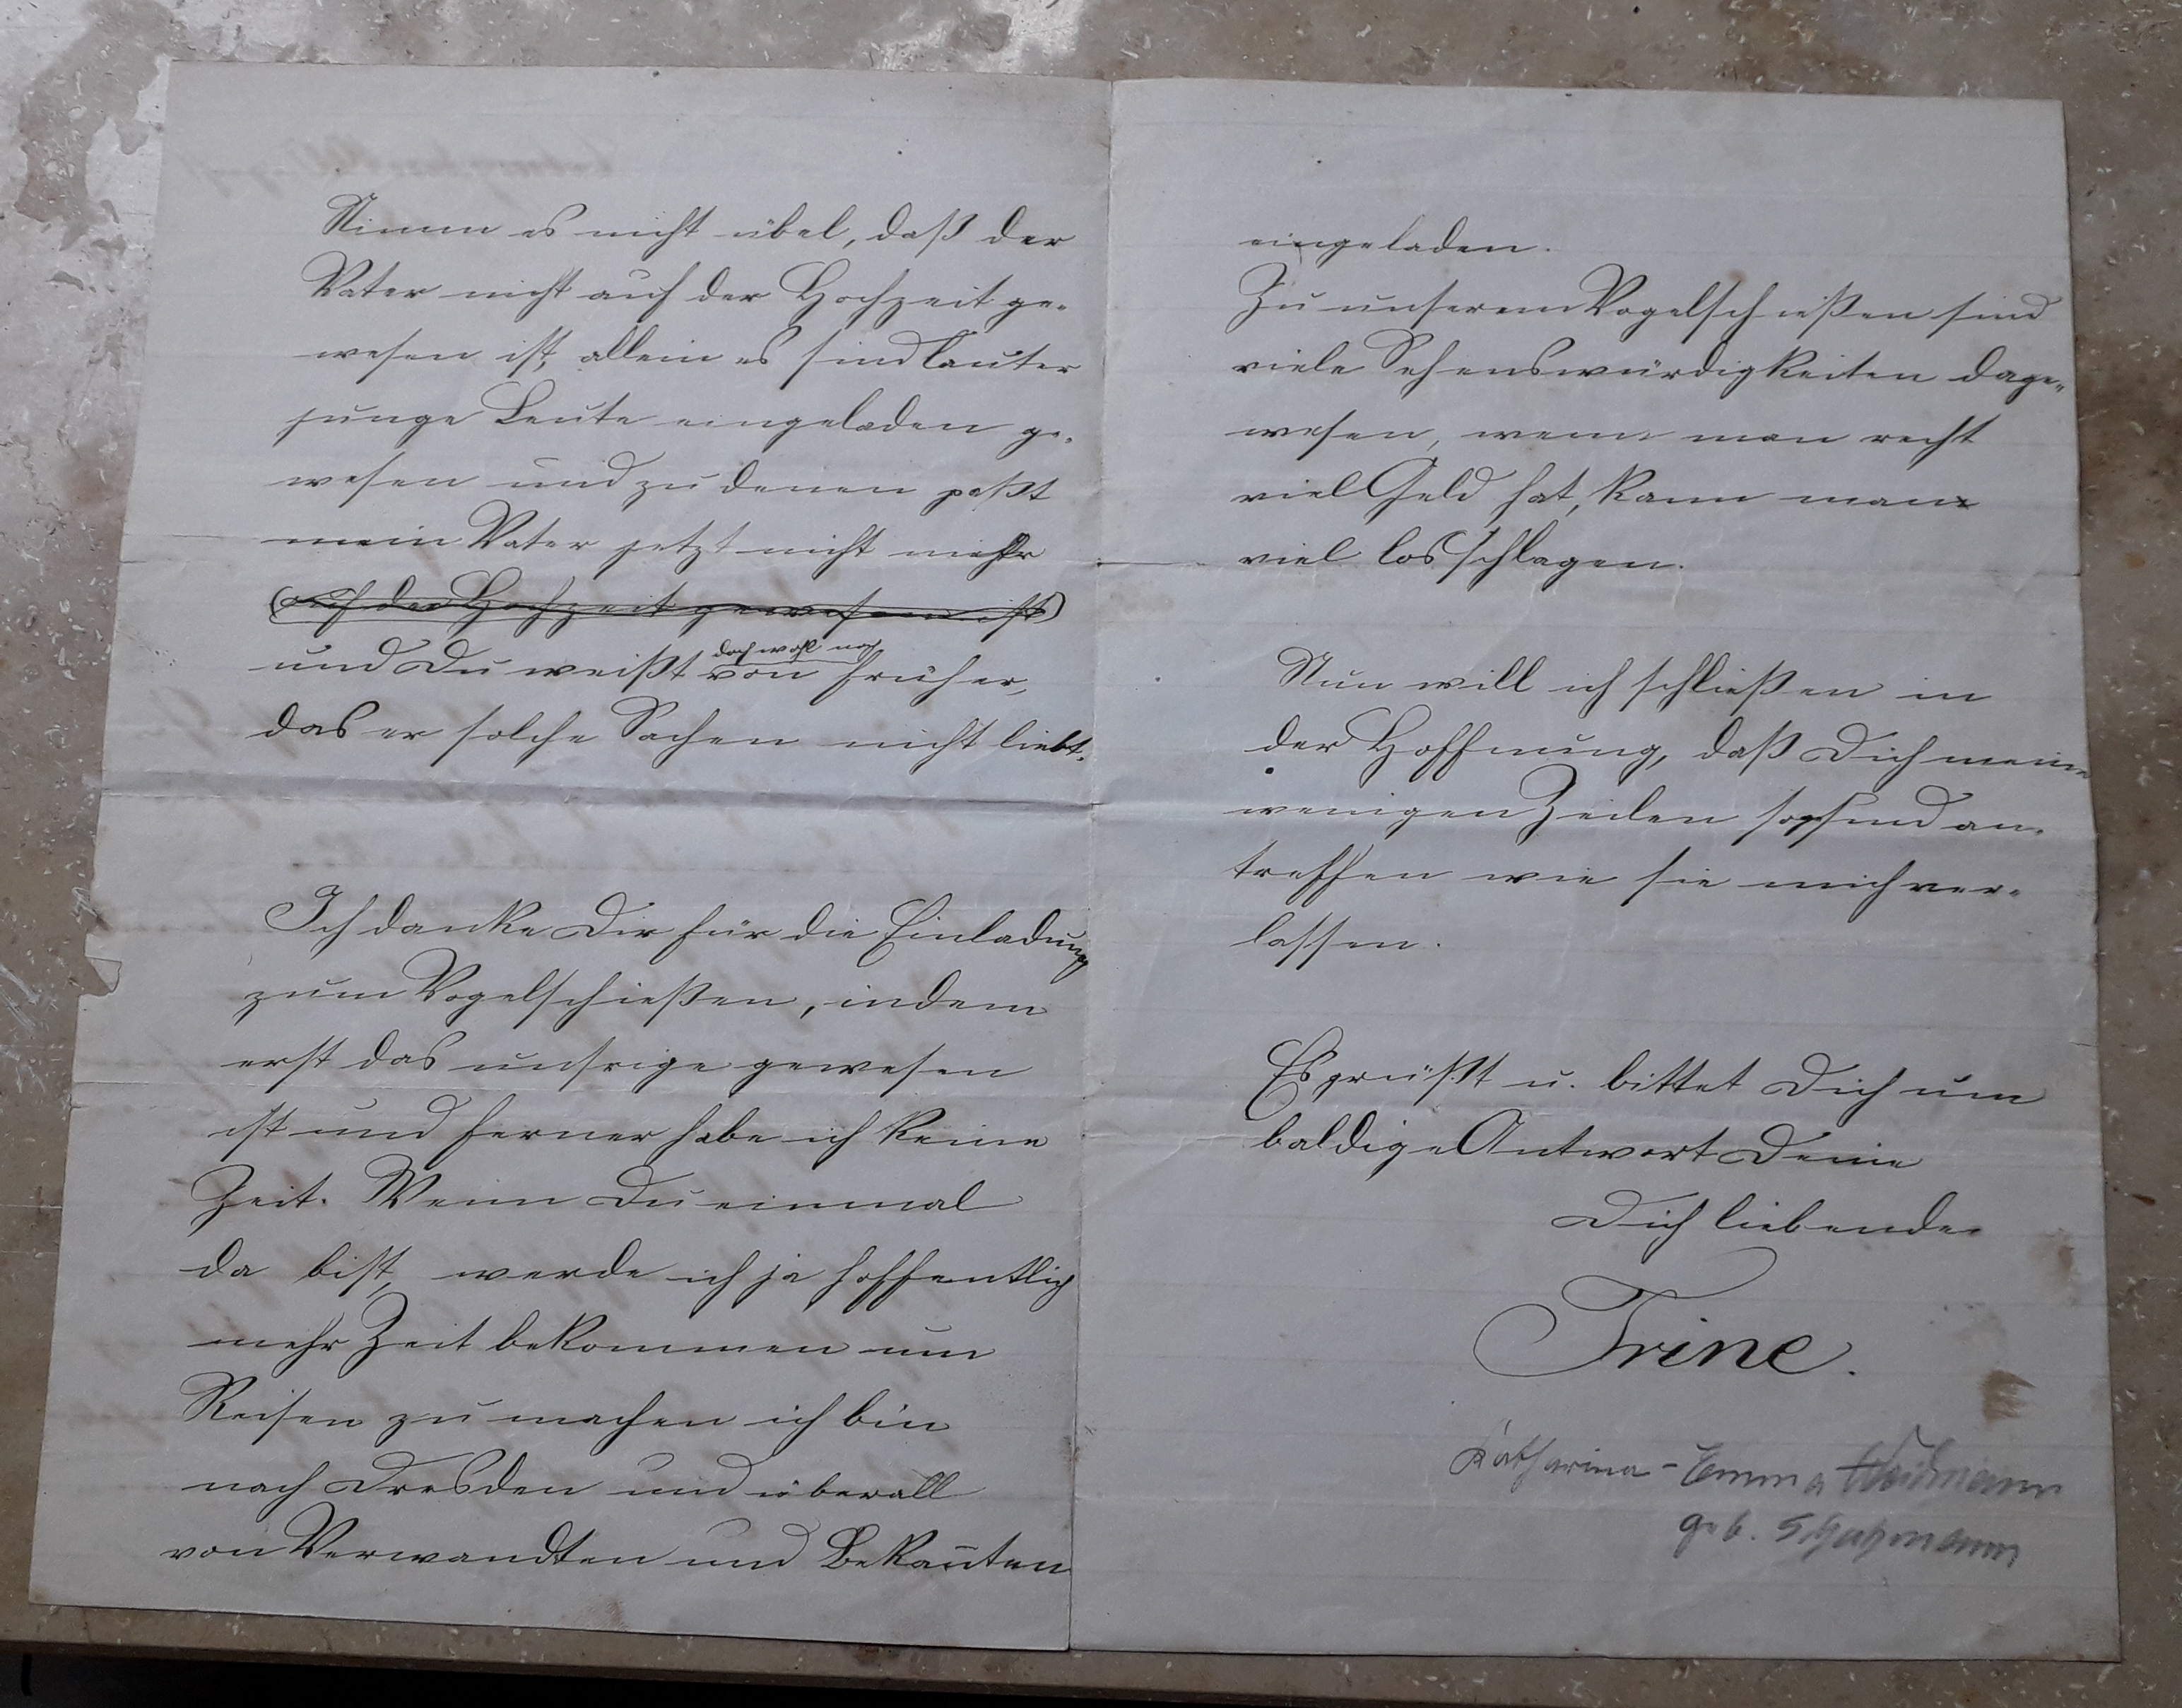 Nimm es nicht übel, daß der
Vater nicht auf der Hochzeit ge-
wesen ist, allein es sind lauter
junge Leute eingeladen ge-
wesen und zu denen paßt
mein Vater jetzt nicht mehr
(auf der Hochzeit gewesen ist)
doch wohl noch
und Du weißt von früher,
das er solche Sachen nicht liebt.
Ich danke Dir für die Einladung
zum Vogelschießen, indem
erst das unsrige gewesen
ist und ferner habe ich keine
Zeit. Wenn Du einmal
da bist, werde ich ja hoffentlich
mehr Zeit bekommen um
Reisen zu machen ich bin
nach Dresden und überall
von Verwandten und Bekannten
eingeladen.
Zu unserem Vogelschießen sind
viele Sehenswürdigkeiten dage-
wesen, wenn man recht
viel Geld hat, kann man
viel losschlagen.
Nun will ich schließen in
der Hoffnung, daß Dich meine
wenigen Zeilen so an-
treffen wie sie mich ver-
lassen.
Es grüßt u. bittet Dich um
baldige Antwort Deine
Dich liebende
Trine.
Katharina-Emma
geb.